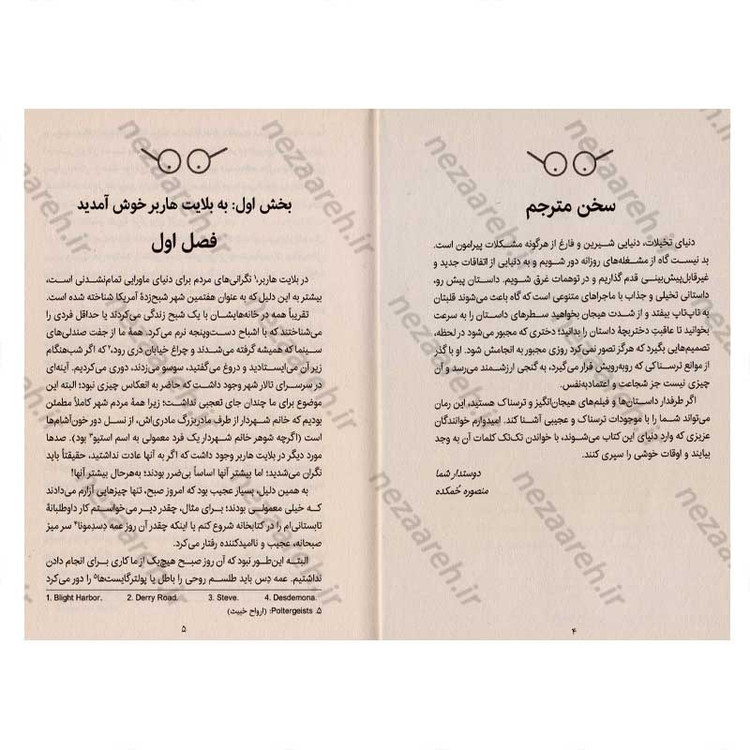 سخن مترجم
دنیای تخیلات، دنیایی شیرین و فارغ از هرگونه مشکلات پیرامون است.
بد نیست گاه از مشغله‌های روزانه دور شویم و به دنیایی از اتفاقات جدید و
غیرقابل‌پیش‌بینی قدم گذاریم و در توهمات غرق شویم. داستان پیش رو،
داستانی تخیلی و جذاب با ماجراهای متنوعی است که گاه باعث می‌شوند قلبتان
به تاپ‌تاپ بیفتد و از شدت هیجان بخواهید سطرهای داستان را به سرعت
بخوانید تا عاقبتِ دختربچهٔ داستان را بدانید؛ دختری که مجبور می‌شود در لحظه،
تصمیم‌هایی بگیرد که هرگز تصور نمی‌کرد روزی مجبور به انجامش شود. او با گذر
از موانع ترسناکی که روبه‌رویش قرار می‌گیرد، به گنجی ارزشمند می‌رسد و آن
چیزی نیست جز شجاعت و اعتمادبه‌نفس.
اگر طرفدار داستان‌ها و فیلم‌های هیجان‌انگیز و ترسناک هستید، این رمان
می‌تواند شما را با موجودات ترسناک و عجیبی آشنا کند. امیدوارم خوانندگان
عزیزی که وارد دنیای این کتاب می‌شوند، با خواندن تک‌تک کلمات آن به وجد
بیایند و اوقات خوشی را سپری کنند.
دوستدار شما
منصوره خُمکده
۴
بخش اول: به بلایت هاربر خوش آمدید
فصل اول
در بلایت هاربر،۱ نگرانی‌های مردم برای دنیای ماورایی تمام‌نشدنی است،
بیشتر به این دلیل که به عنوان هفتمین شهر شبح‌زدهٔ آمریکا شناخته شده است.
تقریباً همه در خانه‌هایشان با یک شبح زندگی می‌کردند یا حداقل فردی را
می‌شناختند که با اشباح دست‌وپنجه نرم می‌کرد. همهٔ ما از جفت صندلی‌های
سینما که همیشه گرفته می‌شدند و چراغ خیابان دری رود،۲ که اگر شب‌هنگام
زیر آن می‌ایستادید و دروغ می‌گفتید، سوسو می‌زدند، دوری می‌کردیم. آینه‌ای
در سرسرای تالار شهر وجود داشت که حاضر به انعکاس چیزی نبود؛ البته این
موضوع برای ما چندان جای تعجبی نداشت؛ زیرا همهٔ مردم شهر کاملاً مطمئن
بودیم که خانم شهردار از طرف مادربزرگ مادری‌اش، از نسل دور خون‌آشام‌ها
است (اگرچه شوهر خانم شهردار یک فرد معمولی به اسم استیو۳ بود). صدها
مورد دیگر در بلایت هاربر وجود داشت که اگر به آنها عادت نداشتید، حقیقتاً باید
نگران می‌شدید؛ اما بیشتر آنها اساساً بی‌ضرر بودند؛ به‌هرحال بیشتر آنها!
به همین دلیل، بسیار عجیب بود که امروز صبح، تنها چیزهایی آزارم می‌دادند
که خیلی معمولی بودند؛ برای مثال، چقدر دیر می‌خواستم کار داوطلبانهٔ
تابستانی‌ام را در کتابخانه شروع کنم یا اینکه چقدر آن روز عمه دِسدِمونا۴ سر میز
صبحانه، عجیب و ناامیدکننده رفتار می‌کرد.
البته این‌طور نبود که آن روز صبح هیچ‌یک از ما کاری برای انجام دادن
نداشتیم. عمه دِس باید طلسم روحی را باطل یا پولترگایست‌ها۵ را دور می‌کرد
1. Blight Harbor. 2. Derry Road. 3. Steve. 4. Desdemona.
۵. Poltergeists: (ارواح خبیث)
۵
nezaareh.ir